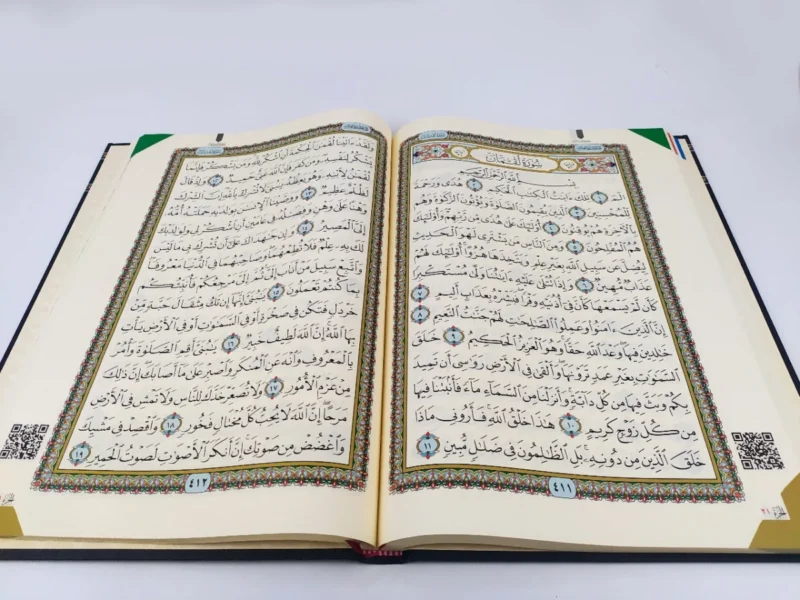 سُورَةُ لُقْمَانَ
بِسْمِ اللَّهِ الرَّحْمَٰنِ الرَّحِيمِ
الٓمٓ ١ تِلْكَ ءَايَٰتُ ٱلْكِتَٰبِ ٱلْحَكِيمِ ٢ هُدًى وَرَحْمَةً
لِّلْمُحْسِنِينَ ٣ ٱلَّذِينَ يُقِيمُونَ ٱلصَّلَوٰةَ وَيُؤْتُونَ ٱلزَّكَوٰةَ وَهُم
بِٱلْءَاخِرَةِ هُمْ يُوقِنُونَ ٤ أُو۟لَٰٓئِكَ عَلَىٰ هُدًى مِّن رَّبِّهِمْ وَأُو۟لَٰٓئِكَ
هُمُ ٱلْمُفْلِحُونَ ٥ وَمِنَ ٱلنَّاسِ مَن يَشْتَرِى لَهْوَ ٱلْحَدِيثِ
لِيُضِلَّ عَن سَبِيلِ ٱللَّهِ بِغَيْرِ عِلْمٍ وَيَتَّخِذَهَا هُزُوًا أُو۟لَٰٓئِكَ لَهُمْ
عَذَابٌ مُّهِينٌ ٦ وَإِذَا تُتْلَىٰ عَلَيْهِ ءَايَٰتُنَا وَلَّىٰ مُسْتَكْبِرًا
كَأَن لَّمْ يَسْمَعْهَا كَأَنَّ فِىٓ أُذُنَيْهِ وَقْرًا فَبَشِّرْهُ بِعَذَابٍ أَلِيمٍ ٧
إِنَّ ٱلَّذِينَ ءَامَنُوا۟ وَعَمِلُوا۟ ٱلصَّٰلِحَٰتِ لَهُمْ جَنَّٰتُ ٱلنَّعِيمِ ٨
خَٰلِدِينَ فِيهَا وَعْدَ ٱللَّهِ حَقًّا وَهُوَ ٱلْعَزِيزُ ٱلْحَكِيمُ ٩ خَلَقَ
ٱلسَّمَٰوَٰتِ بِغَيْرِ عَمَدٍ تَرَوْنَهَا وَأَلْقَىٰ فِى ٱلْأَرْضِ رَوَٰسِىَ أَن تَمِيدَ
بِكُمْ وَبَثَّ فِيهَا مِن كُلِّ دَآبَّةٍ وَأَنزَلْنَا مِنَ ٱلسَّمَآءِ مَآءً فَأَنۢبَتْنَا فِيهَا
مِن كُلِّ زَوْجٍ كَرِيمٍ ١٠ هَٰذَا خَلْقُ ٱللَّهِ فَأَرُونِى مَاذَا
خَلَقَ ٱلَّذِينَ مِن دُونِهِۦ بَلِ ٱلظَّٰلِمُونَ فِى ضَلَٰلٍ مُّبِينٍ ١١
٤١١
وَلَقَدْ ءَاتَيْنَا لُقْمَٰنَ ٱلْحِكْمَةَ أَنِ ٱشْكُرْ لِلَّهِ وَمَن يَشْكُرْ فَإِنَّمَا
يَشْكُرُ لِنَفْسِهِۦ وَمَن كَفَرَ فَإِنَّ ٱللَّهَ غَنِىٌّ حَمِيدٌ ١٢ وَإِذْ قَالَ
لُقْمَٰنُ لِٱبْنِهِۦ وَهُوَ يَعِظُهُۥ يَٰبُنَىَّ لَا تُشْرِكْ بِٱللَّهِ إِنَّ ٱلشِّرْكَ
لَظُلْمٌ عَظِيمٌ ١٣ وَوَصَّيْنَا ٱلْإِنسَٰنَ بِوَٰلِدَيْهِ حَمَلَتْهُ أُمُّهُۥ
وَهْنًا عَلَىٰ وَهْنٍ وَفِصَٰلُهُۥ فِى عَامَيْنِ أَنِ ٱشْكُرْ لِى وَلِوَٰلِدَيْكَ
إِلَىَّ ٱلْمَصِيرُ ١٤ وَإِن جَٰهَدَاكَ عَلَىٰٓ أَن تُشْرِكَ بِى مَا لَيْسَ
لَكَ بِهِۦ عِلْمٌ فَلَا تُطِعْهُمَا وَصَاحِبْهُمَا فِى ٱلدُّنْيَا مَعْرُوفًا
وَٱتَّبِعْ سَبِيلَ مَنْ أَنَابَ إِلَىَّ ثُمَّ إِلَىَّ مَرْجِعُكُمْ فَأُنَبِّئُكُم
بِمَا كُنتُمْ تَعْمَلُونَ ١٥ يَٰبُنَىَّ إِنَّهَآ إِن تَكُ مِثْقَالَ حَبَّةٍ مِّنْ
خَرْدَلٍ فَتَكُن فِى صَخْرَةٍ أَوْ فِى ٱلسَّمَٰوَٰتِ أَوْ فِى ٱلْأَرْضِ يَأْتِ
بِهَا ٱللَّهُ إِنَّ ٱللَّهَ لَطِيفٌ خَبِيرٌ ١٦ يَٰبُنَىَّ أَقِمِ ٱلصَّلَوٰةَ وَأْمُرْ
بِٱلْمَعْرُوفِ وَٱنْهَ عَنِ ٱلْمُنكَرِ وَٱصْبِرْ عَلَىٰ مَآ أَصَابَكَ إِنَّ ذَٰلِكَ
مِنْ عَزْمِ ٱلْأُمُورِ ١٧ وَلَا تُصَعِّرْ خَدَّكَ لِلنَّاسِ وَلَا تَمْشِ فِى ٱلْأَرْضِ
مَرَحًا إِنَّ ٱللَّهَ لَا يُحِبُّ كُلَّ مُخْتَالٍ فَخُورٍ ١٨ وَٱقْصِدْ فِى مَشْيِكَ
وَٱغْضُضْ مِن صَوْتِكَ إِنَّ أَنكَرَ ٱلْأَصْوَٰتِ لَصَوْتُ ٱلْحَمِيرِ ١٩
٤١٢